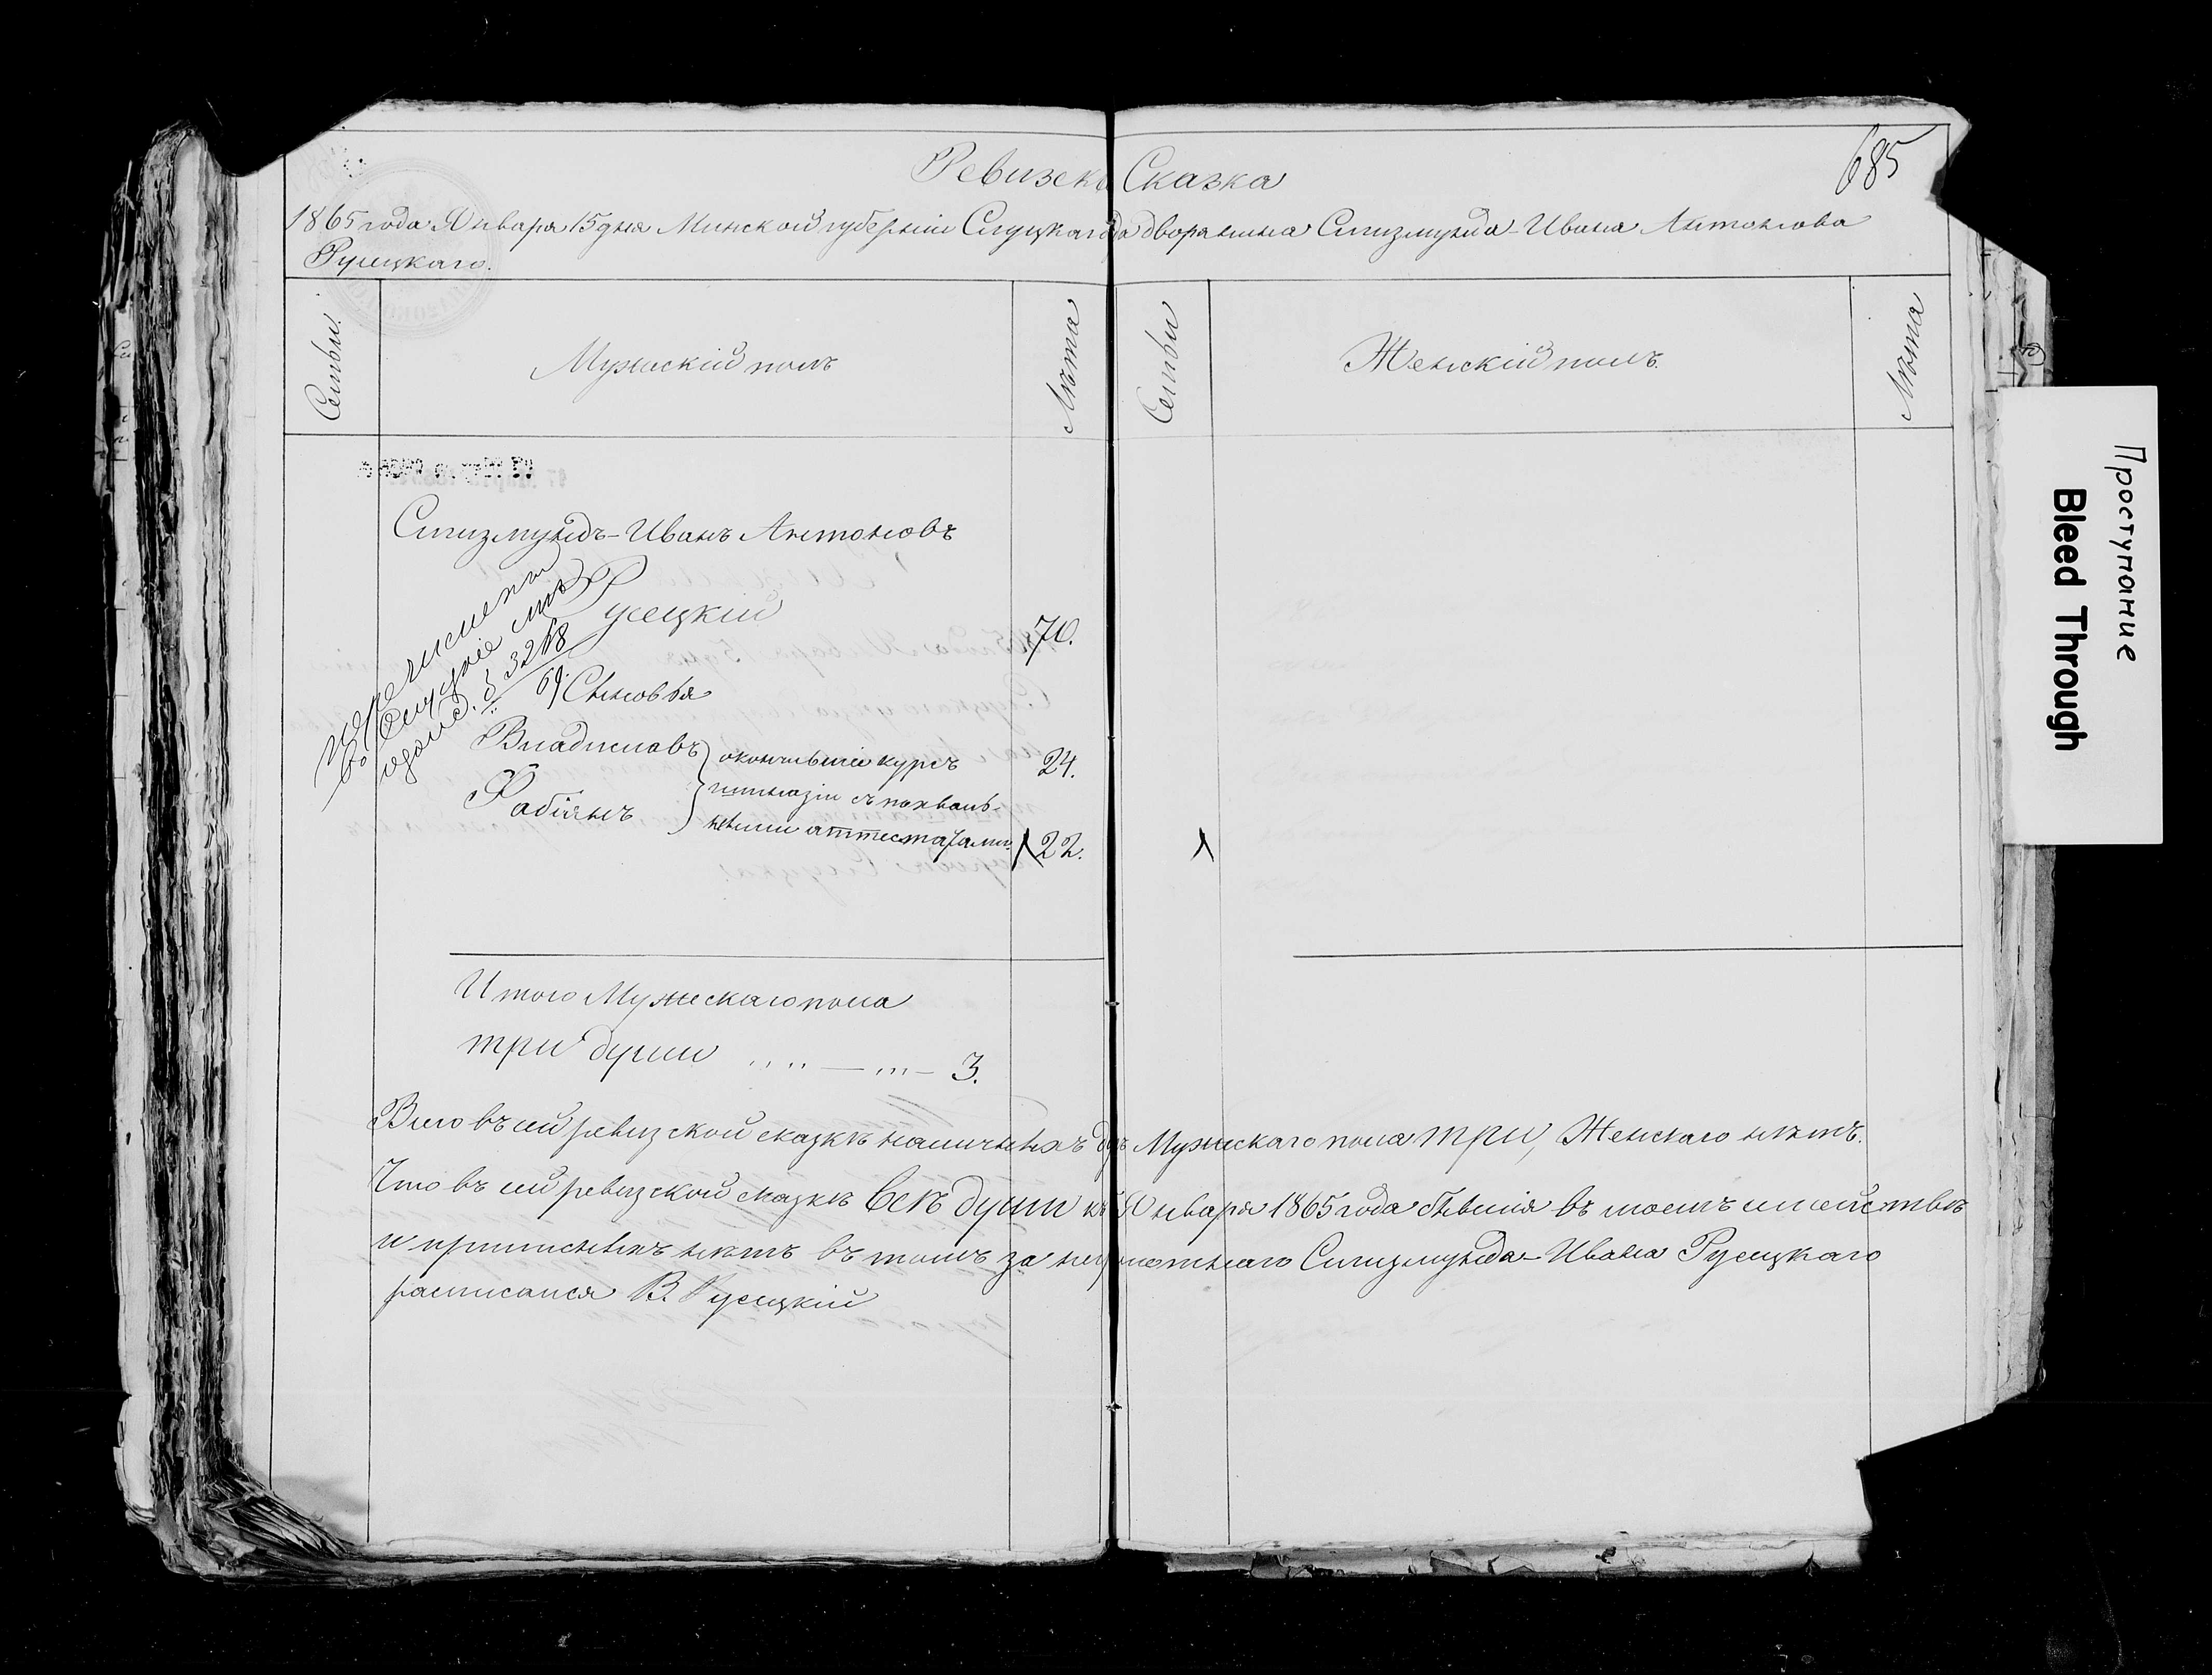 685
Ревизск Сказка
1865 года Января 15 дня Минской губерніи Слуцкаго дворянина Сигизмунда-Ивана Антонова
Русецкаго.
Семьи. Мужескій полъ Лѣта Семьи Женскій полъ. Лѣта
Сигизмундъ-Иванъ Антоновъ
Русецкій 70.
перечисленъ
въ Слуцкіе
Сыновья
Владиславъ окончившіе курсъ 24.
гимназіи съ похваль-
Фабіянъ ными аттестатами. 22.
Итого Мужескаго пола
три души 3.
Всего въ сей ревизской сказкѣ наличныхъ Мужескаго пола три, Женскаго нѣтъ.
Что въ сей ревизской сказкѣ всѣ души къ Января 1865 года бывшія въ моемъ семействѣ
и приписныхъ нѣтъ въ томъ за неграмотнаго Сигизмунда-Ивана Русецкаго
расписался В. Русецкій
Проступание
Bleed Through